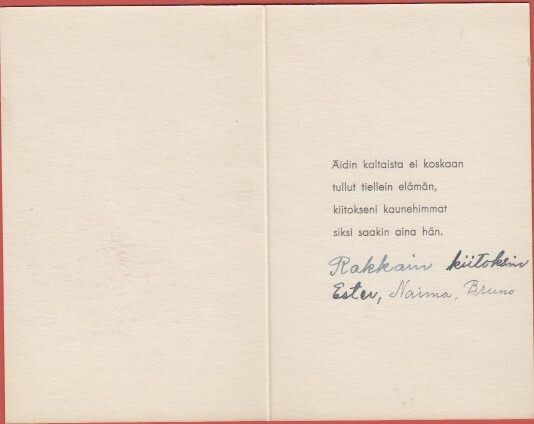 Äidin kaltaista ei koskaan
tullut tiellein elämän,
kiitokseni kaunehimmat
siksi saakin aina hän.
Rakkain kiitoksin
Ester, Naima, Bruno